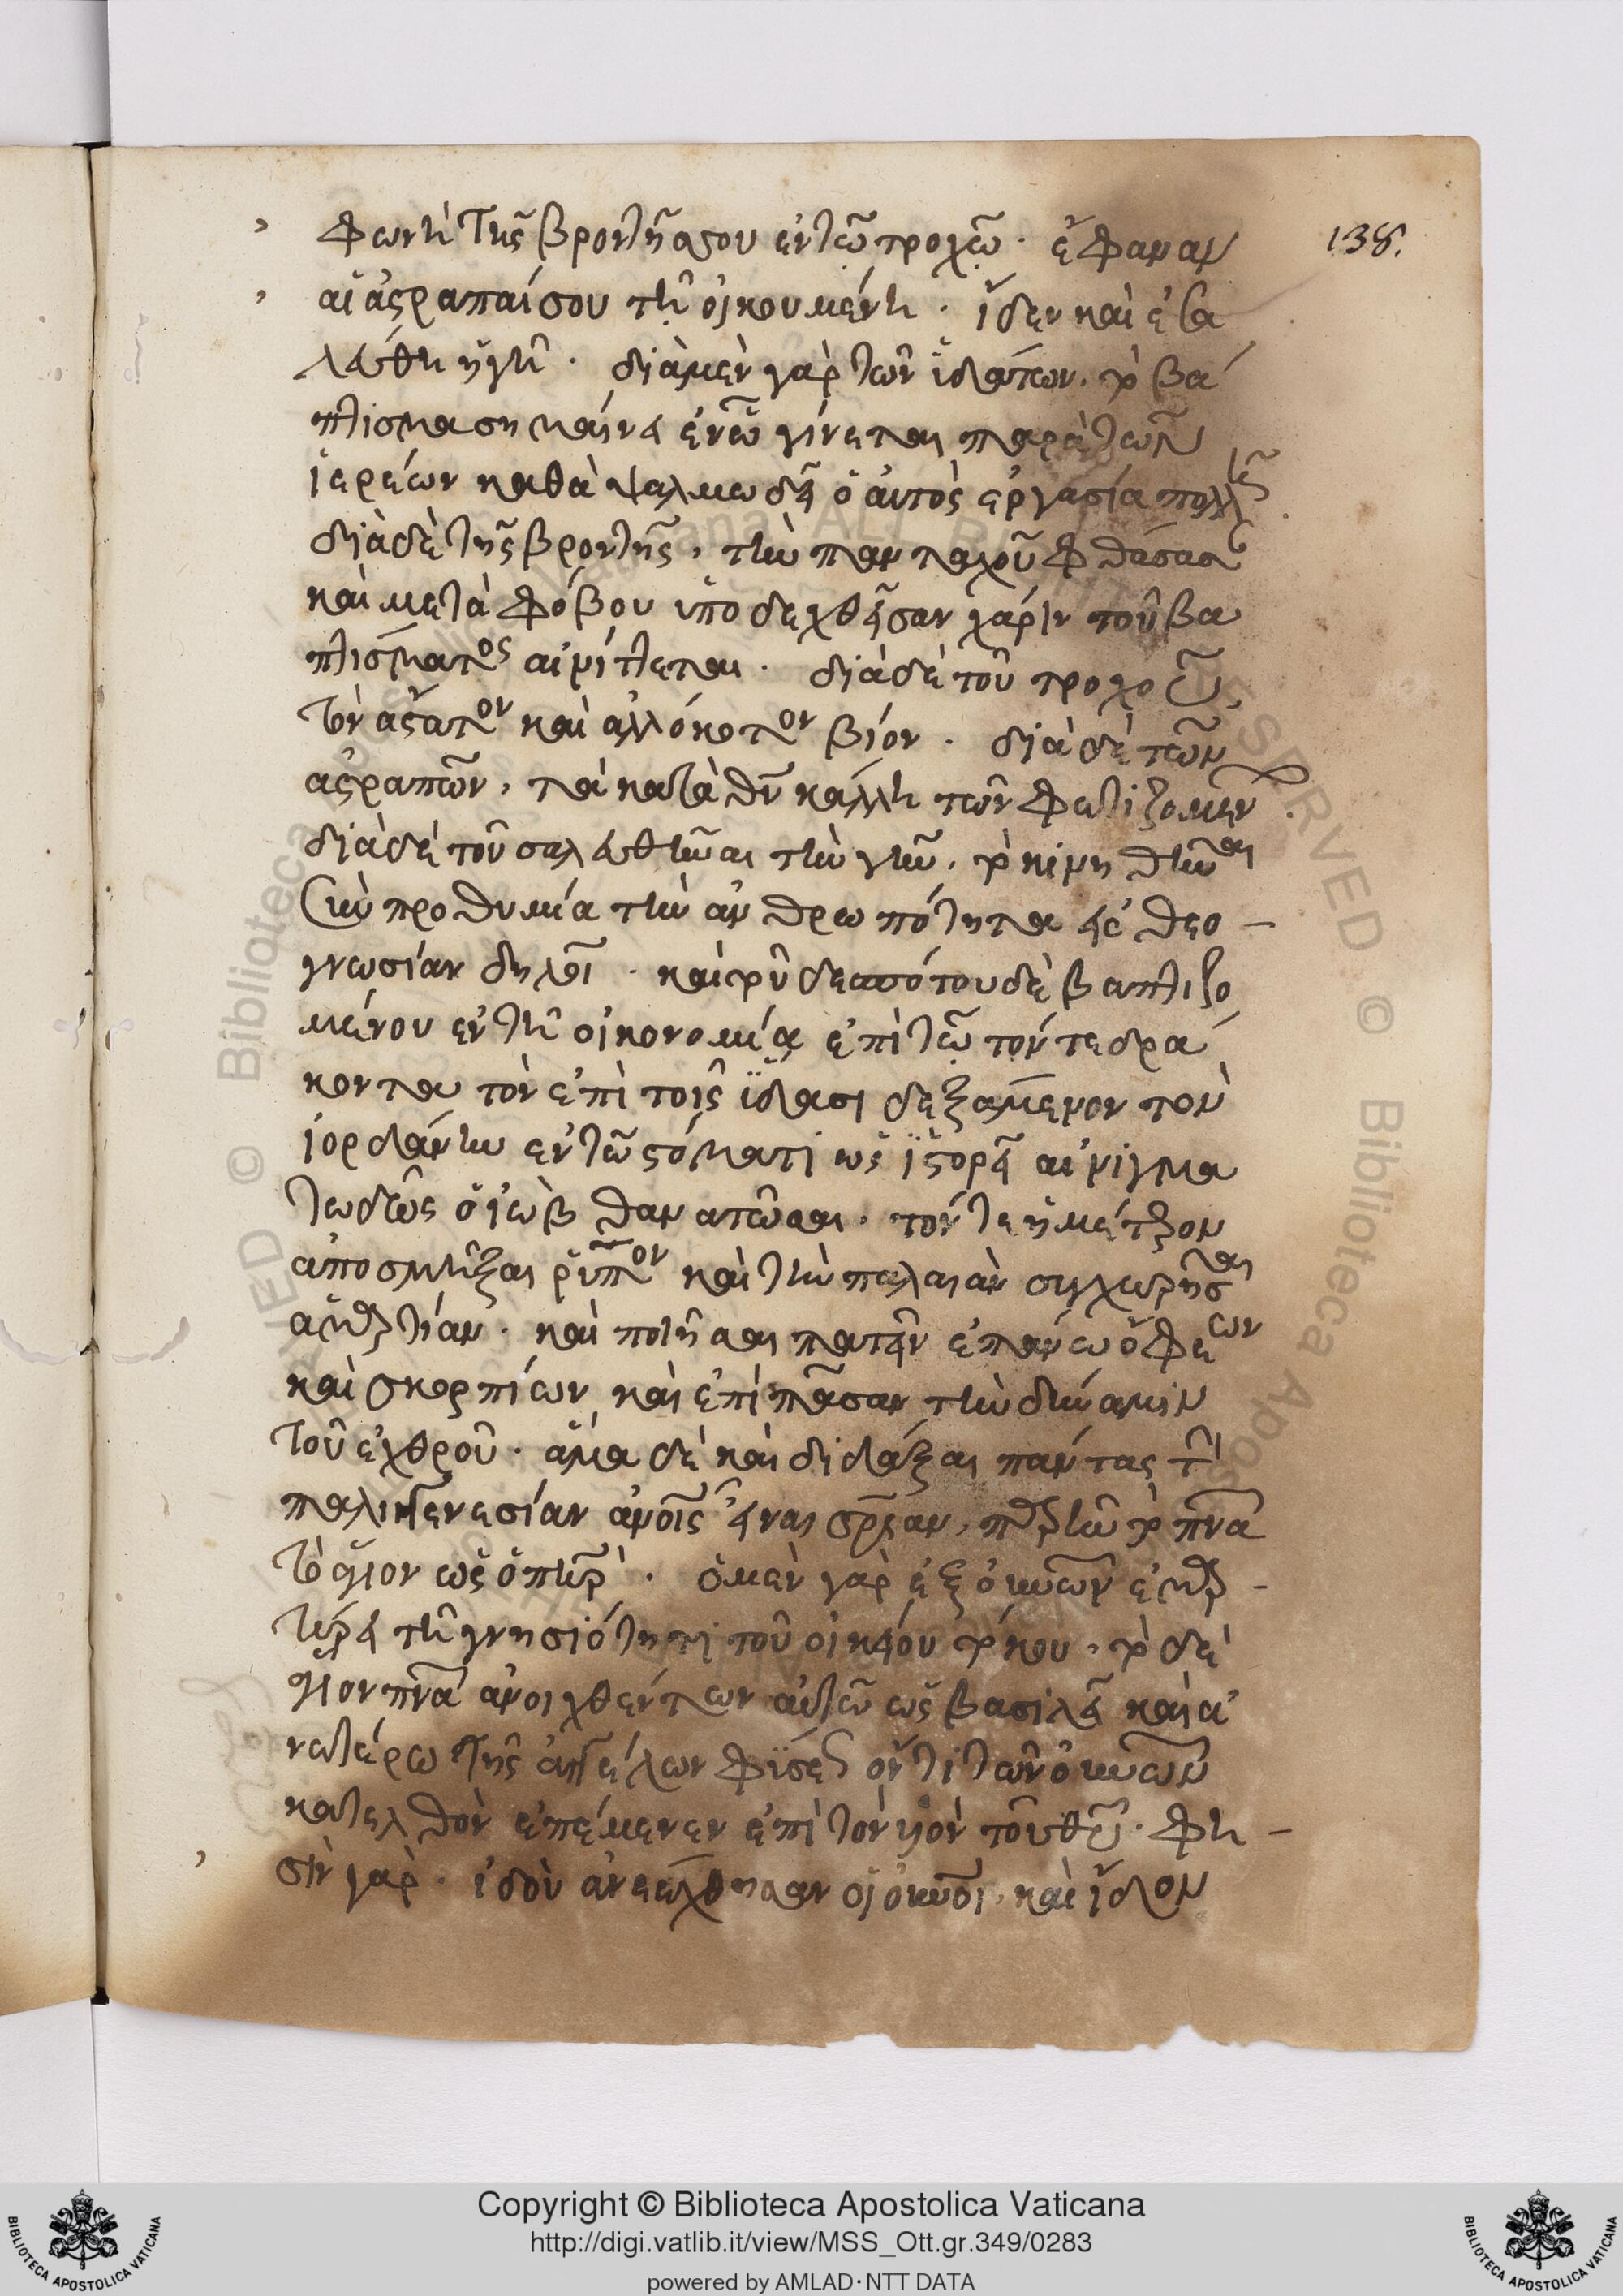 φωνὴ τῆς βροντῆς σου ἐν τῶ τροχῶ · ἔφαναν
138.
αἱ ἀστραπαί σου τῆ οἰκουμένη · ἴδεν καὶ ἐσα
λεύθη ἡ γῆ · διὰ μὲν γὰρ τῶν ὑδάτων, τὸ βά
πτισμα σημαίνει ἐν ὧ γίνεται παρὰ τῶν
ἱερέων καθὰ ψαλμωδεῖ ὁ αὐτὸς ἐργασία πολλῆς
διὰ δὲ τῆς βροντῆς, τὴν πανταχοῦ φθάσασ
καὶ μετὰ φόβου ὑποδεχθεῖσαν χάριν τοῦ βα
πτίσματος αἰνίττεται · διὰ δὲ τοῦ τροχοῦ,
τὸν ἄστατον καὶ ἀλλόκοτον βίον · διὰ δὲ τῶν
ἀστραπῶν, τὰ κατὰ θν κάλλη τῶν φωτιζομέν
διὰ δὲ τοῦ σαλευθῆναι τὴν γῆν, τὸ κινηθῆναι
σὺν προθυμία τὴν ἀνθρωπότητα εἰς θεο -
γνωσίαν δηλοῖ · καὶ τοῦ δεσπότου δὲ βαπτιζο
μένου ἐν τῆ οἰκονομία ἐπὶ τῶ τόν τε δρά
κοντα τὸν ἐπὶ τοῖς ὕδασι δεξάμενον τὸν
ἰορδάνην ἐν τῶ στόματι ὡς ἱστορεῖ αἰνιγμα
τωδῶς ὁ ἰὼβ θανατῶσαι, τόν τε ἡμέτερον
ἀποσμῆξαι ῥύπον καὶ τὴν παλαιὰν συγχωρῆσαι
ἁμαρτίαν · καὶ ποιῆσαι πατεῖν ἐπάνω ὄφεων
καὶ σκορπίων καὶ ἐπὶ πᾶσαν τὴν δύναμιν
τοῦ ἐχθροῦ · ἅμα δὲ καὶ διδάξαι πάντας τὴν
παλιγγενεσίαν ἀνοῖς εἶναι σριαν, παρῆν τὸ πνα
τὸ ἅγιον ὡς ὁ πηρ · ὁ μὲν γὰρ ἐξ οὐνῶν ἐμαρ -
τύρει τῆ γνησιότητι τοῦ οἰκείου τόκου, τὸ δὲ
ἅγιον πνα ἀνοιχθέντων αὐτῶ ὡς βασιλεῖ καὶ ἀ
νωτέρω τῆς ἀγγέλων φύσεως ὄντι τῶν οὐνῶν
κατελθὸν ἐπέμενεν ἐπὶ τὸν υἱὸν τοῦ θυ · φη -
σὶν γὰρ · ἰδοὺ ἀνεώχθησαν οἱ οὐνοὶ, καὶ ἴδον
Copyright © Biblioteca Apostolica Vaticana
http://digi.vatlib.it/view/MSS_Ott.gr.349/0283
powered by AMLAD·NTT DATA
BIBLIOTECA APOSTOLICA VATICANA
BIBLIOTECA APOSTOLICA VATICANA